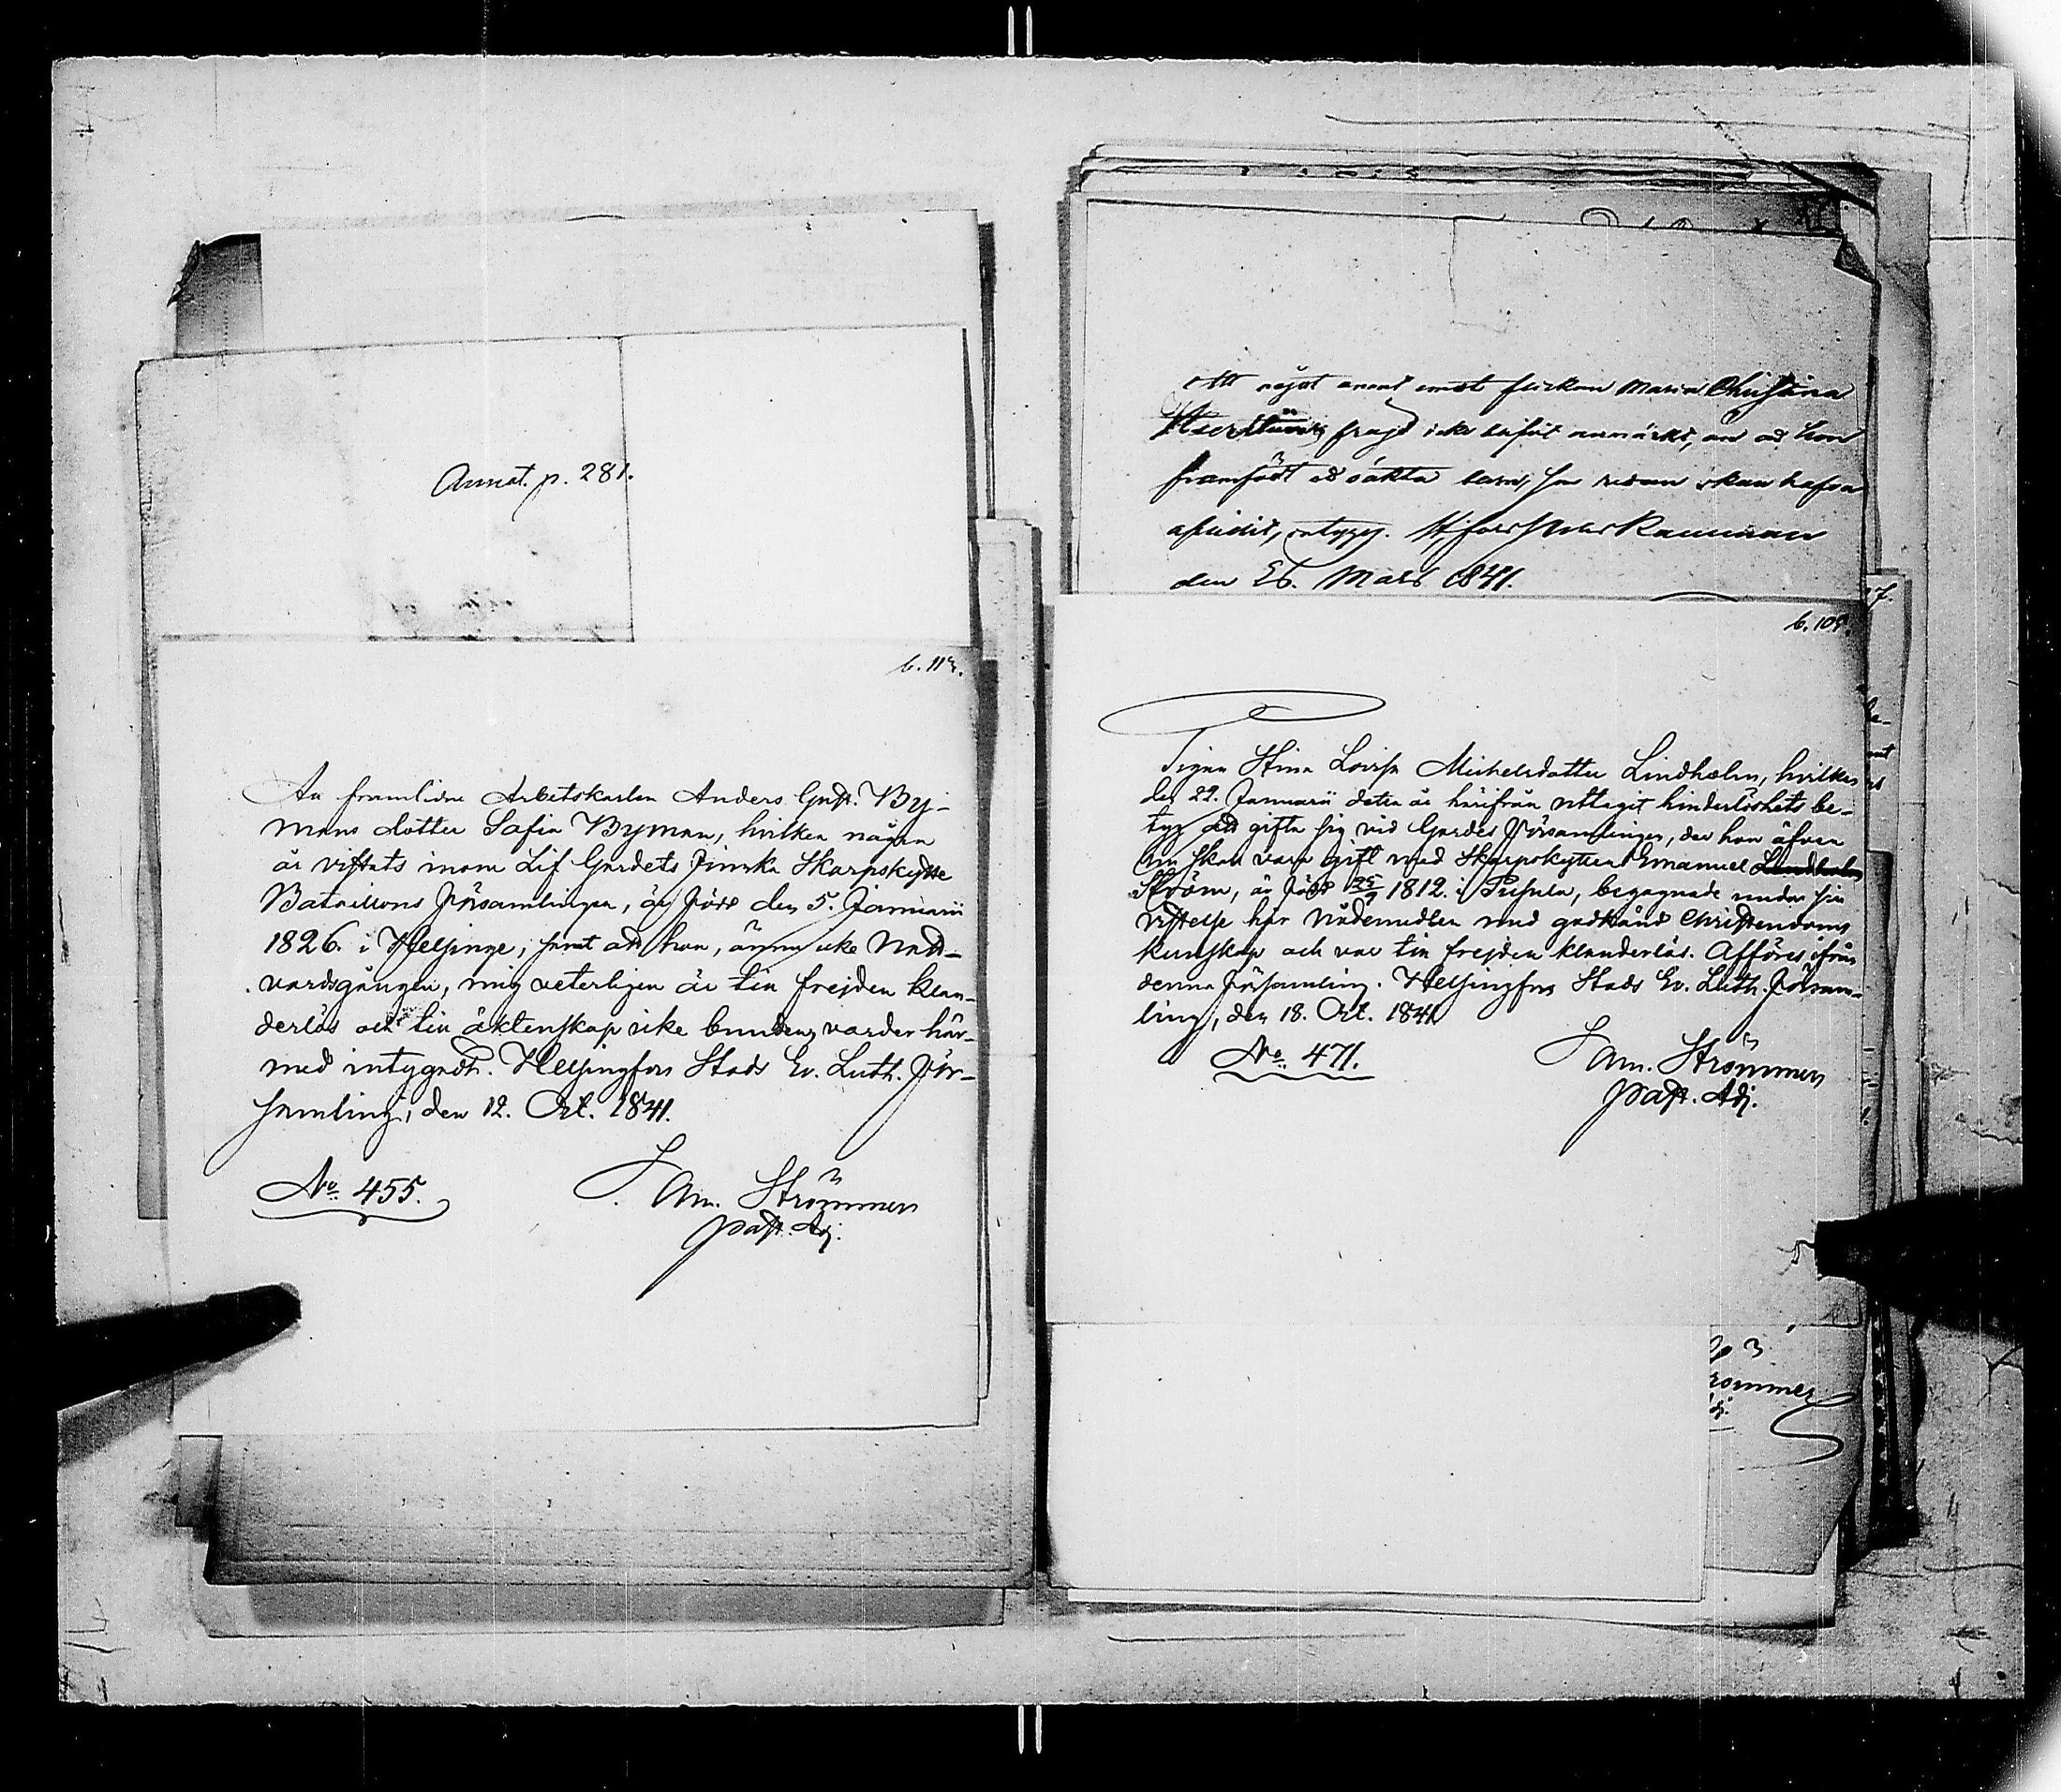 Annot. p. 281.
b. 113.
An framlidne Arbetskarlen Anders Gust. By-
mans dotter Safia Byman, hvilken någon
år vistats inom Lif Gardets Finska Skarpskytte
Bataillons Församlingen, är född den 5. Januarii
1826. i Helsinge; samt att hon, ännu icke Natt-
vardsgången, mig veterligen är till frejden klan-
derlös och till äktenskap icke bunden, varder här-
med intygadt. Helsingfors Stads Ev. Luth. För-
samling, den 12. Oct. 1841.
No. 455.
Am. Strömmer
Past. Adj.
Att något annat emot flickan Maria Christina
frejd icke blifvit anmärkt, än at hon
framfödt et oäkta barn, som sedan skall hafva
aflidit, intygas. H:fors
den 26. Mars 1841.
b. 109.
Pigan Stina Lovisa Michelsdotter Lindholm, hvilken
den 22. Januarii detta år härifrån uttagit hinderlöshets be-
tyg att gifta sig vid Gardes Församlingen, der hon äfven
nu skall vara gift med Skarpskytten Emanuel Lindholm
Ström, är född 25/7 1812. i Pusula, begagnade under sin
vistelse här Nådemedlen med godkänd Christendoms
kunskap och var till frejden klanderlös. Afföres ifrån
denna Församling. Helsingfors Stads Ev. Luth. Försam-
ling, den 18. Oct. 1841.
No. 471.
Am. Strömmer
Past. Adj.
römmer
dj.